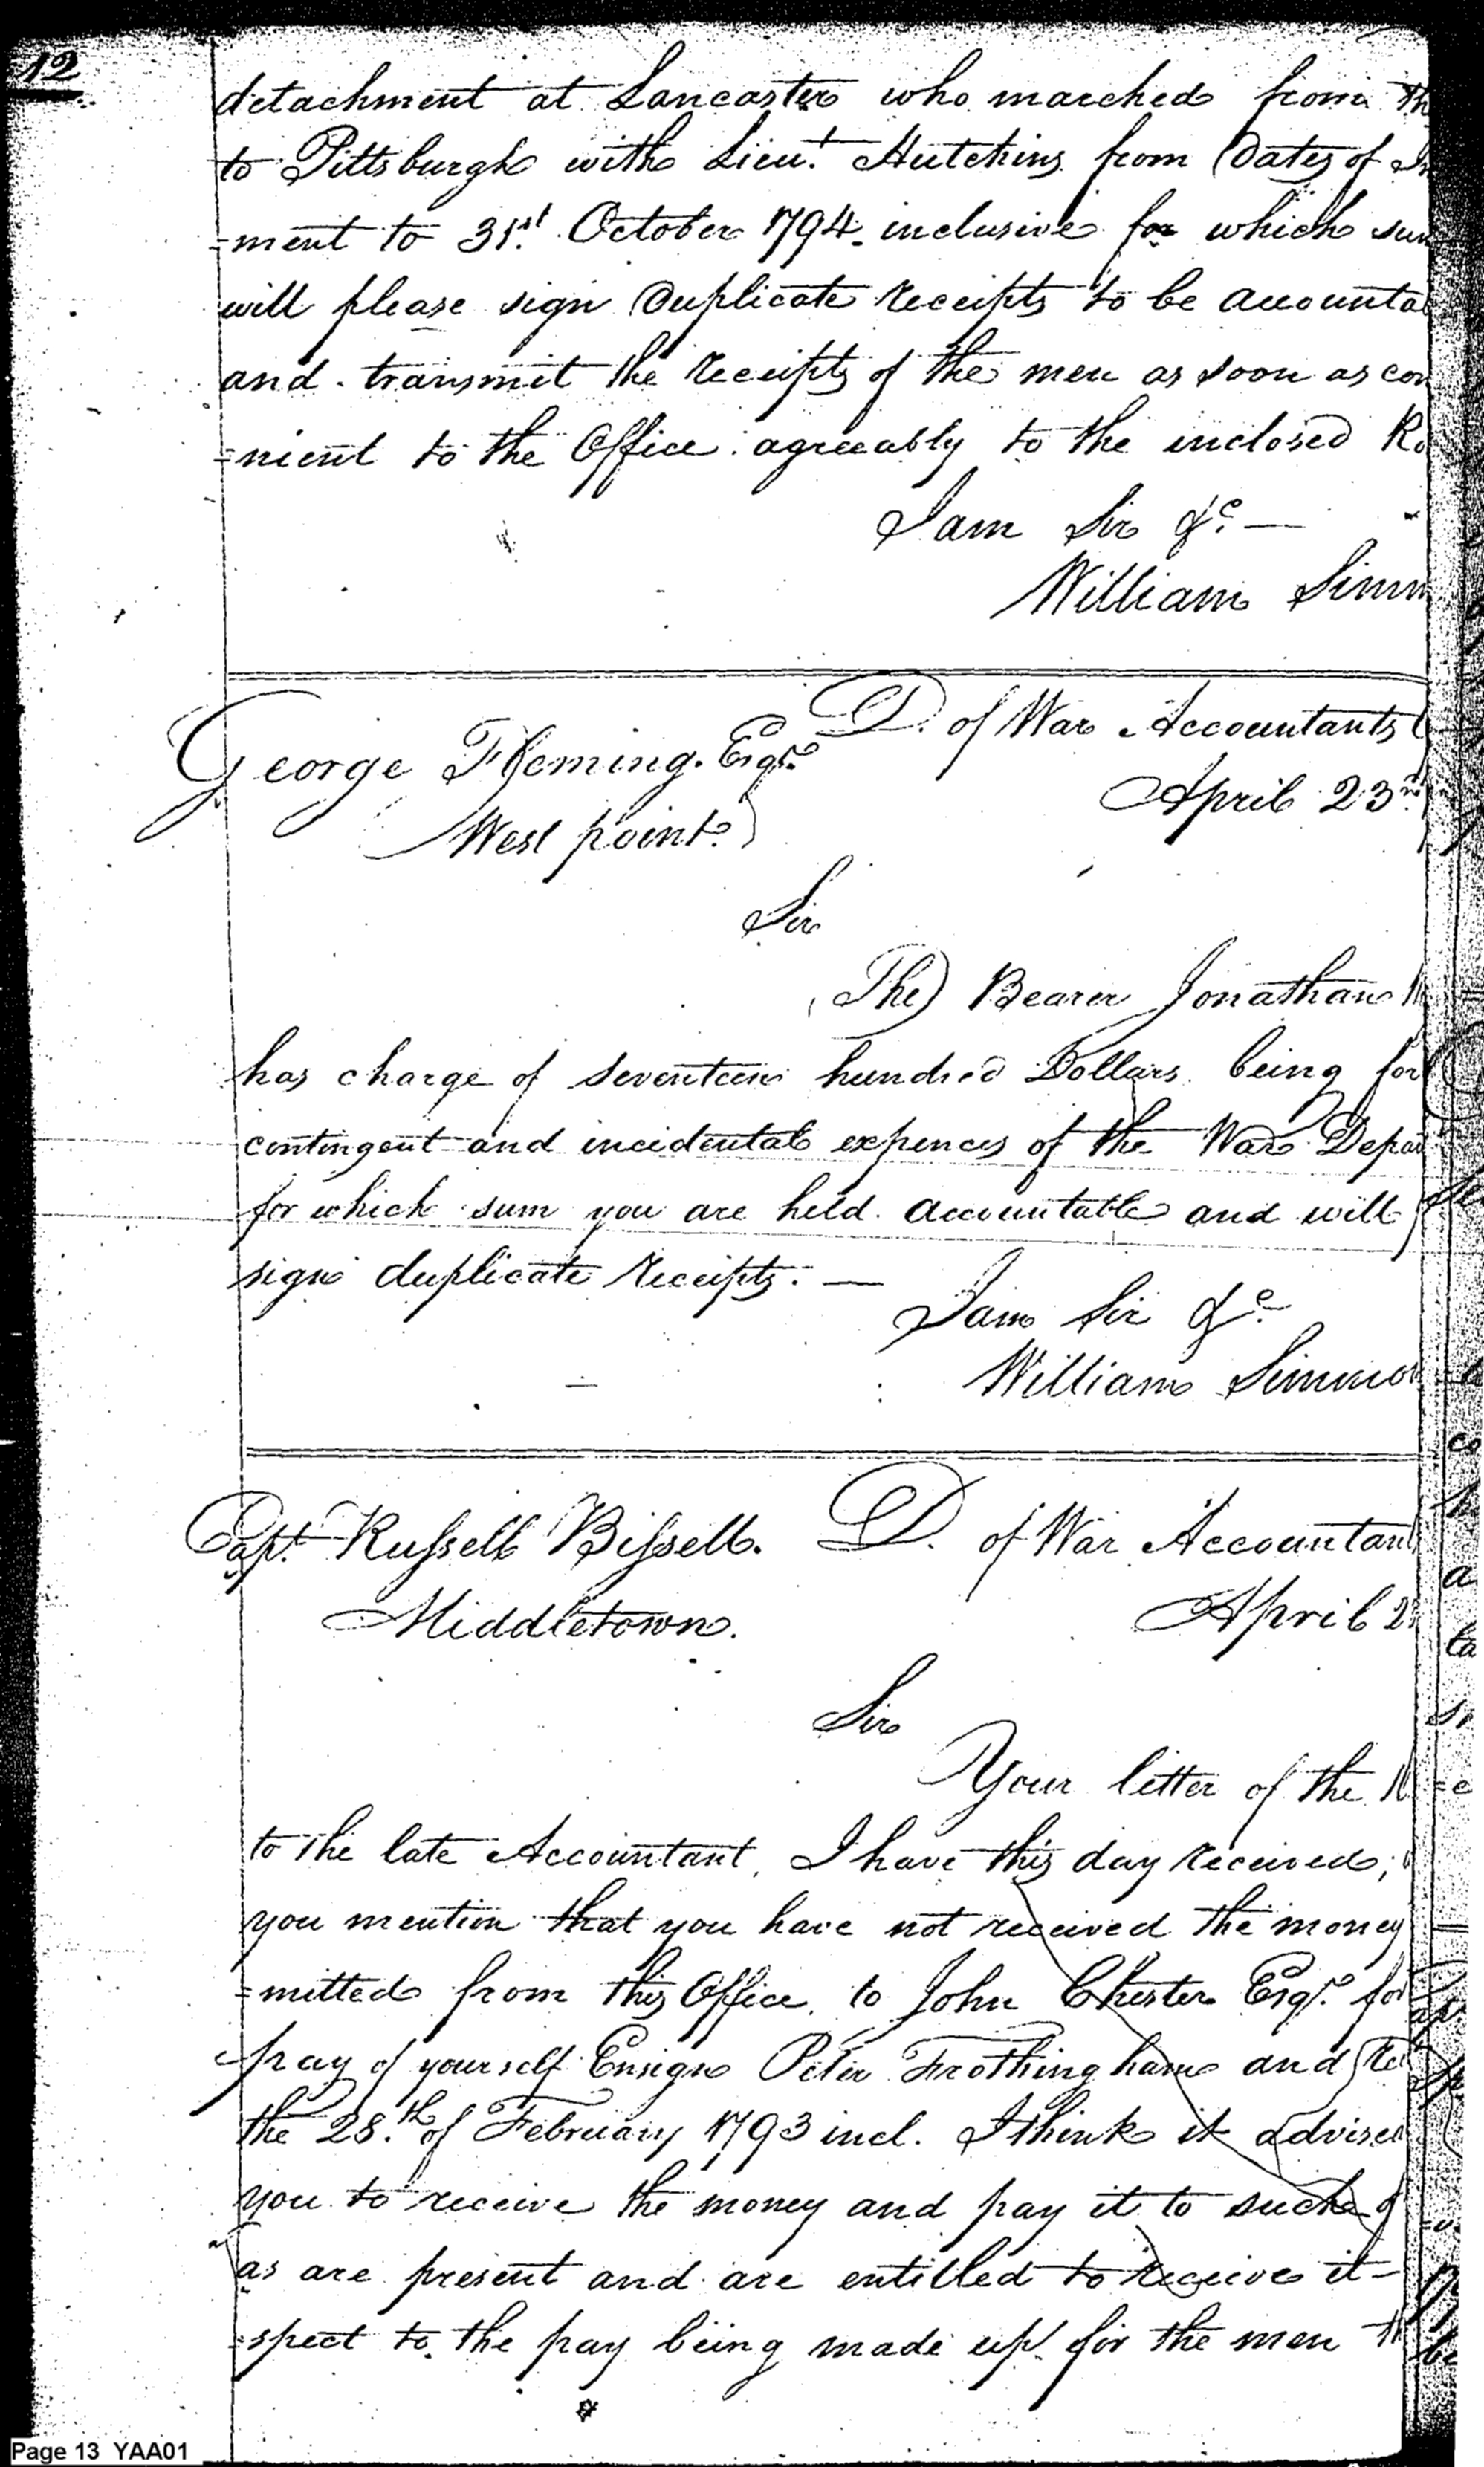 12
detachment at Lancaster who marched from
to Pittsburgh with Lieut. Hutchins from Dates of
=ment to 31st. October 1794. inclusive for which
will please sign Duplicate receipts to be
and transmit the receipts of the men as soon as
=nient to the Office agreeably to the inclosed
I am Sir &c. —
William
D. of War Accountants
George Fleming. Esqr.
April 23
West point.
Sir
The Bearer Jonathan
has charge of seventeen hundred Dollars being for
contingent and incidental expences of the War
for which sum you are held accountable and will
sign duplicate receipts. —
I am Sir &c.
William
Capt. Russell Bissell. D. of War
Middletown. April
Sir
Your letter of the
to the late Accountant, I have this day received;
you mention that you have not received the money
=mitted from this Office. to John Chester Esqr. for
pay of yourself Ensign Peter Frothingham and
the 28.th of February 1793 incl. I think it
you to receive the money and pay it to such
as are present and are entitled to receive it—
=spect to the pay being made up for the men
Page 13 YAA01